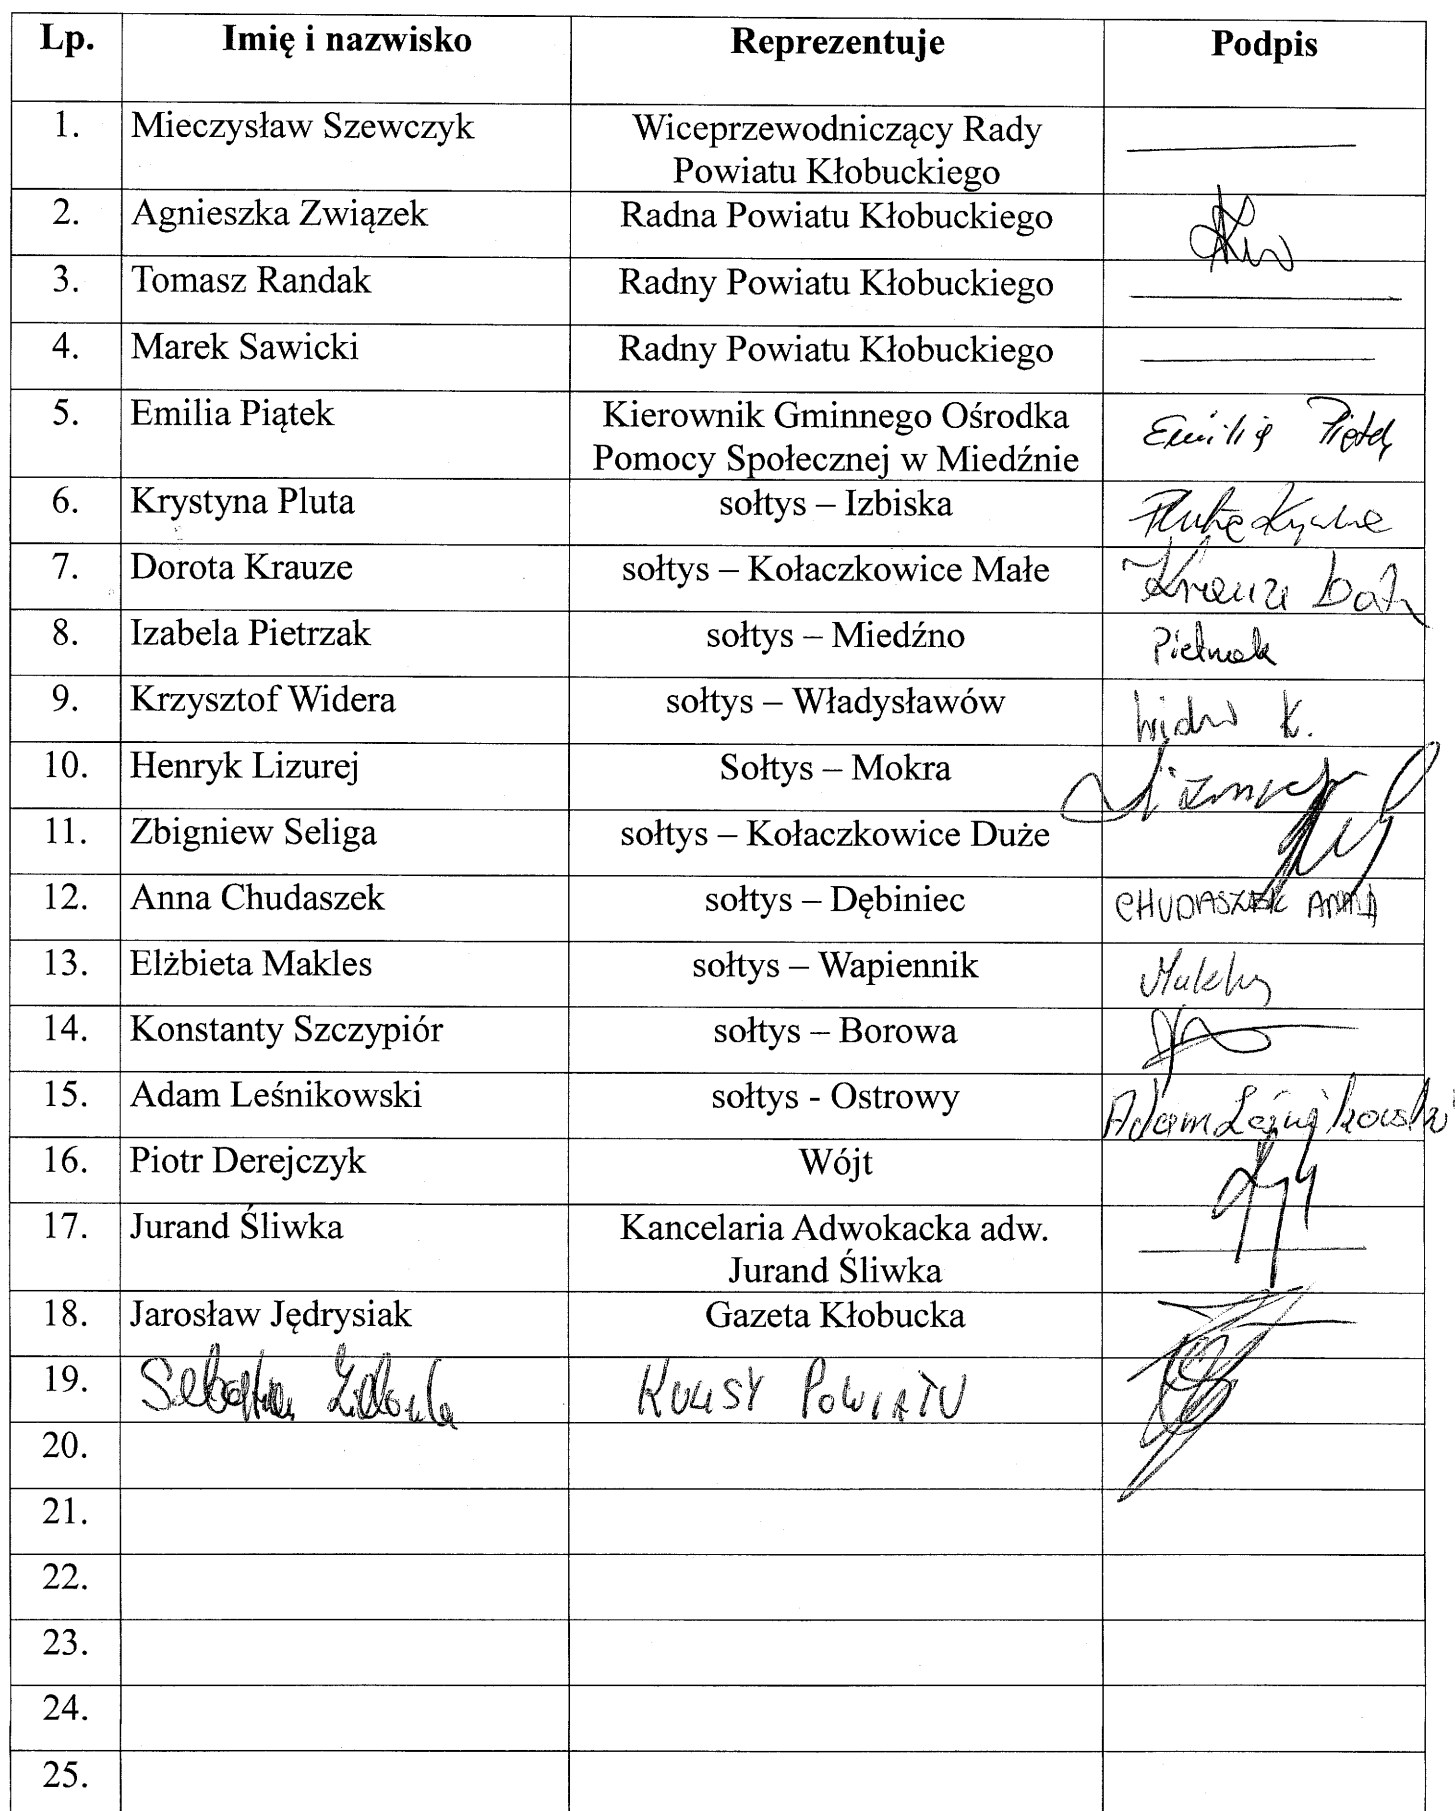 Lp. Imię i nazwisko Reprezentuje Podpis
1. Mieczysław Szewczyk Wiceprzewodniczący Rady
Powiatu Kłobuckiego
2. Agnieszka Związek Radna Powiatu Kłobuckiego
3. Tomasz Randak Radny Powiatu Kłobuckiego
4. Marek Sawicki Radny Powiatu Kłobuckiego
5. Emilia Piątek Kierownik Gminnego Ośrodka Emilia Piątek
Pomocy Społecznej w Miedźnie
6. Krystyna Pluta sołtys – Izbiska Pluta Krystyna
7. Dorota Krauze sołtys – Kołaczkowice Małe Krauze
8. Izabela Pietrzak sołtys – Miedźno Pietrzak
9. Krzysztof Widera sołtys – Władysławów K.
10. Henryk Lizurej Sołtys – Mokra Lizurej
11. Zbigniew Seliga sołtys – Kołaczkowice Duże
12. Anna Chudaszek sołtys – Dębiniec CHUDASZEK ANNA
13. Elżbieta Makles sołtys – Wapiennik Makles
14. Konstanty Szczypiór sołtys – Borowa
15. Adam Leśnikowski sołtys - Ostrowy Adam Leśnikowski
16. Piotr Derejczyk Wójt
17. Jurand Śliwka Kancelaria Adwokacka adw.
Jurand Śliwka
18. Jarosław Jędrysiak Gazeta Kłobucka
19. Sebastian KULISY POWIATU
20.
21.
22.
23.
24.
25.